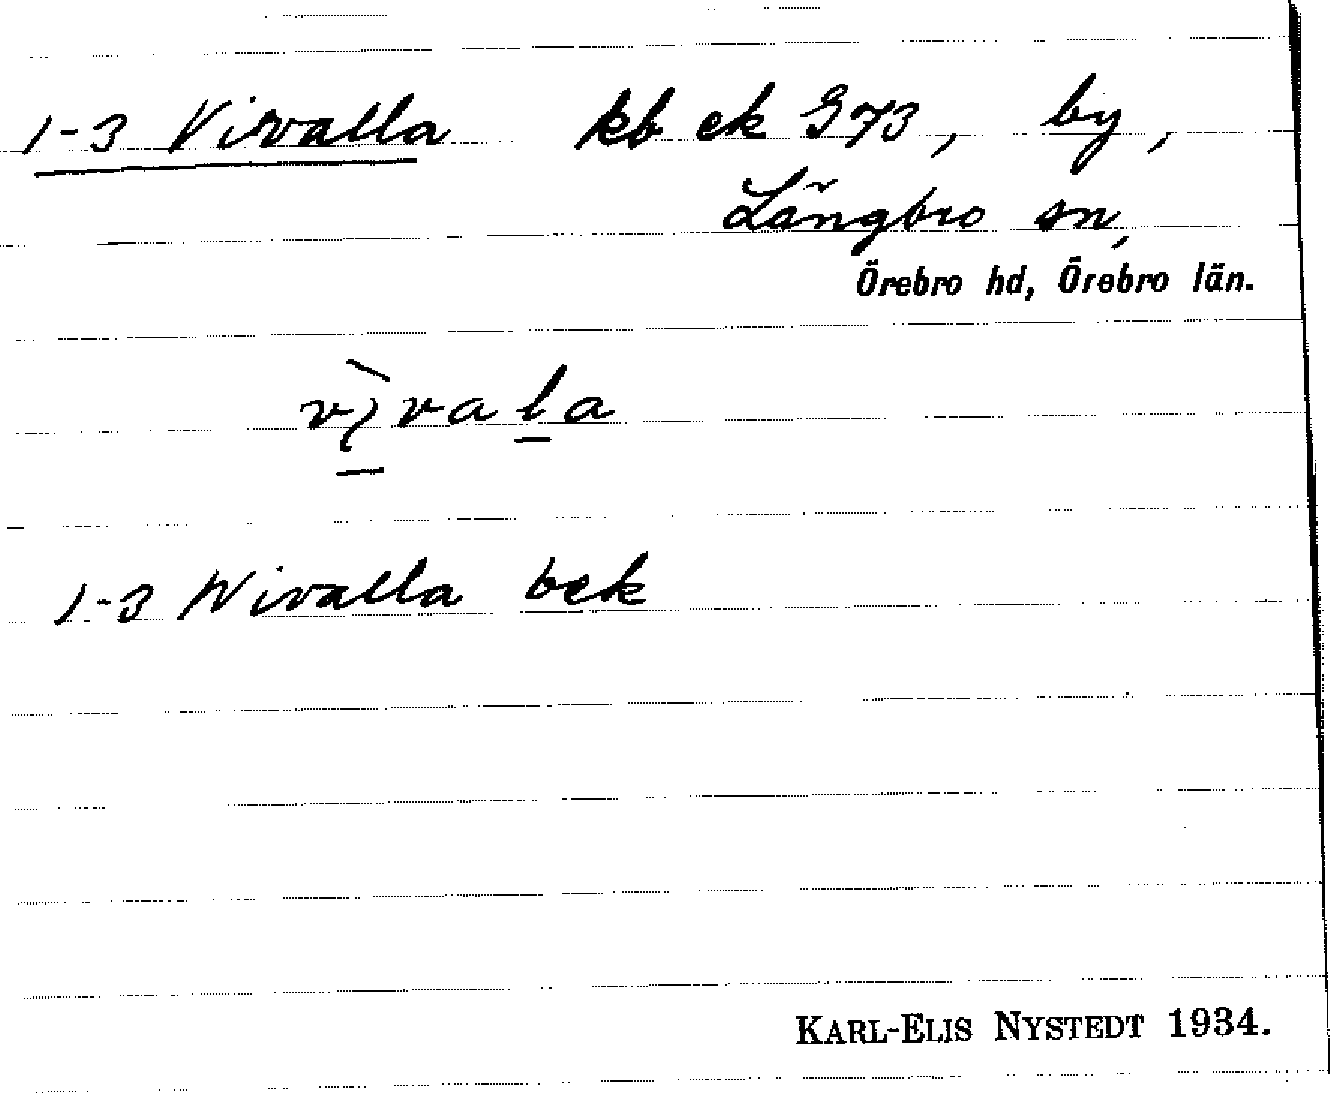 1-3 Vivalla kb ek 973, by,
Längbro sn,
Örebro hd, Örebro län.
vìvala
1-3 Wivalla bek
KARL-ELIS NYSTEDT 1934.